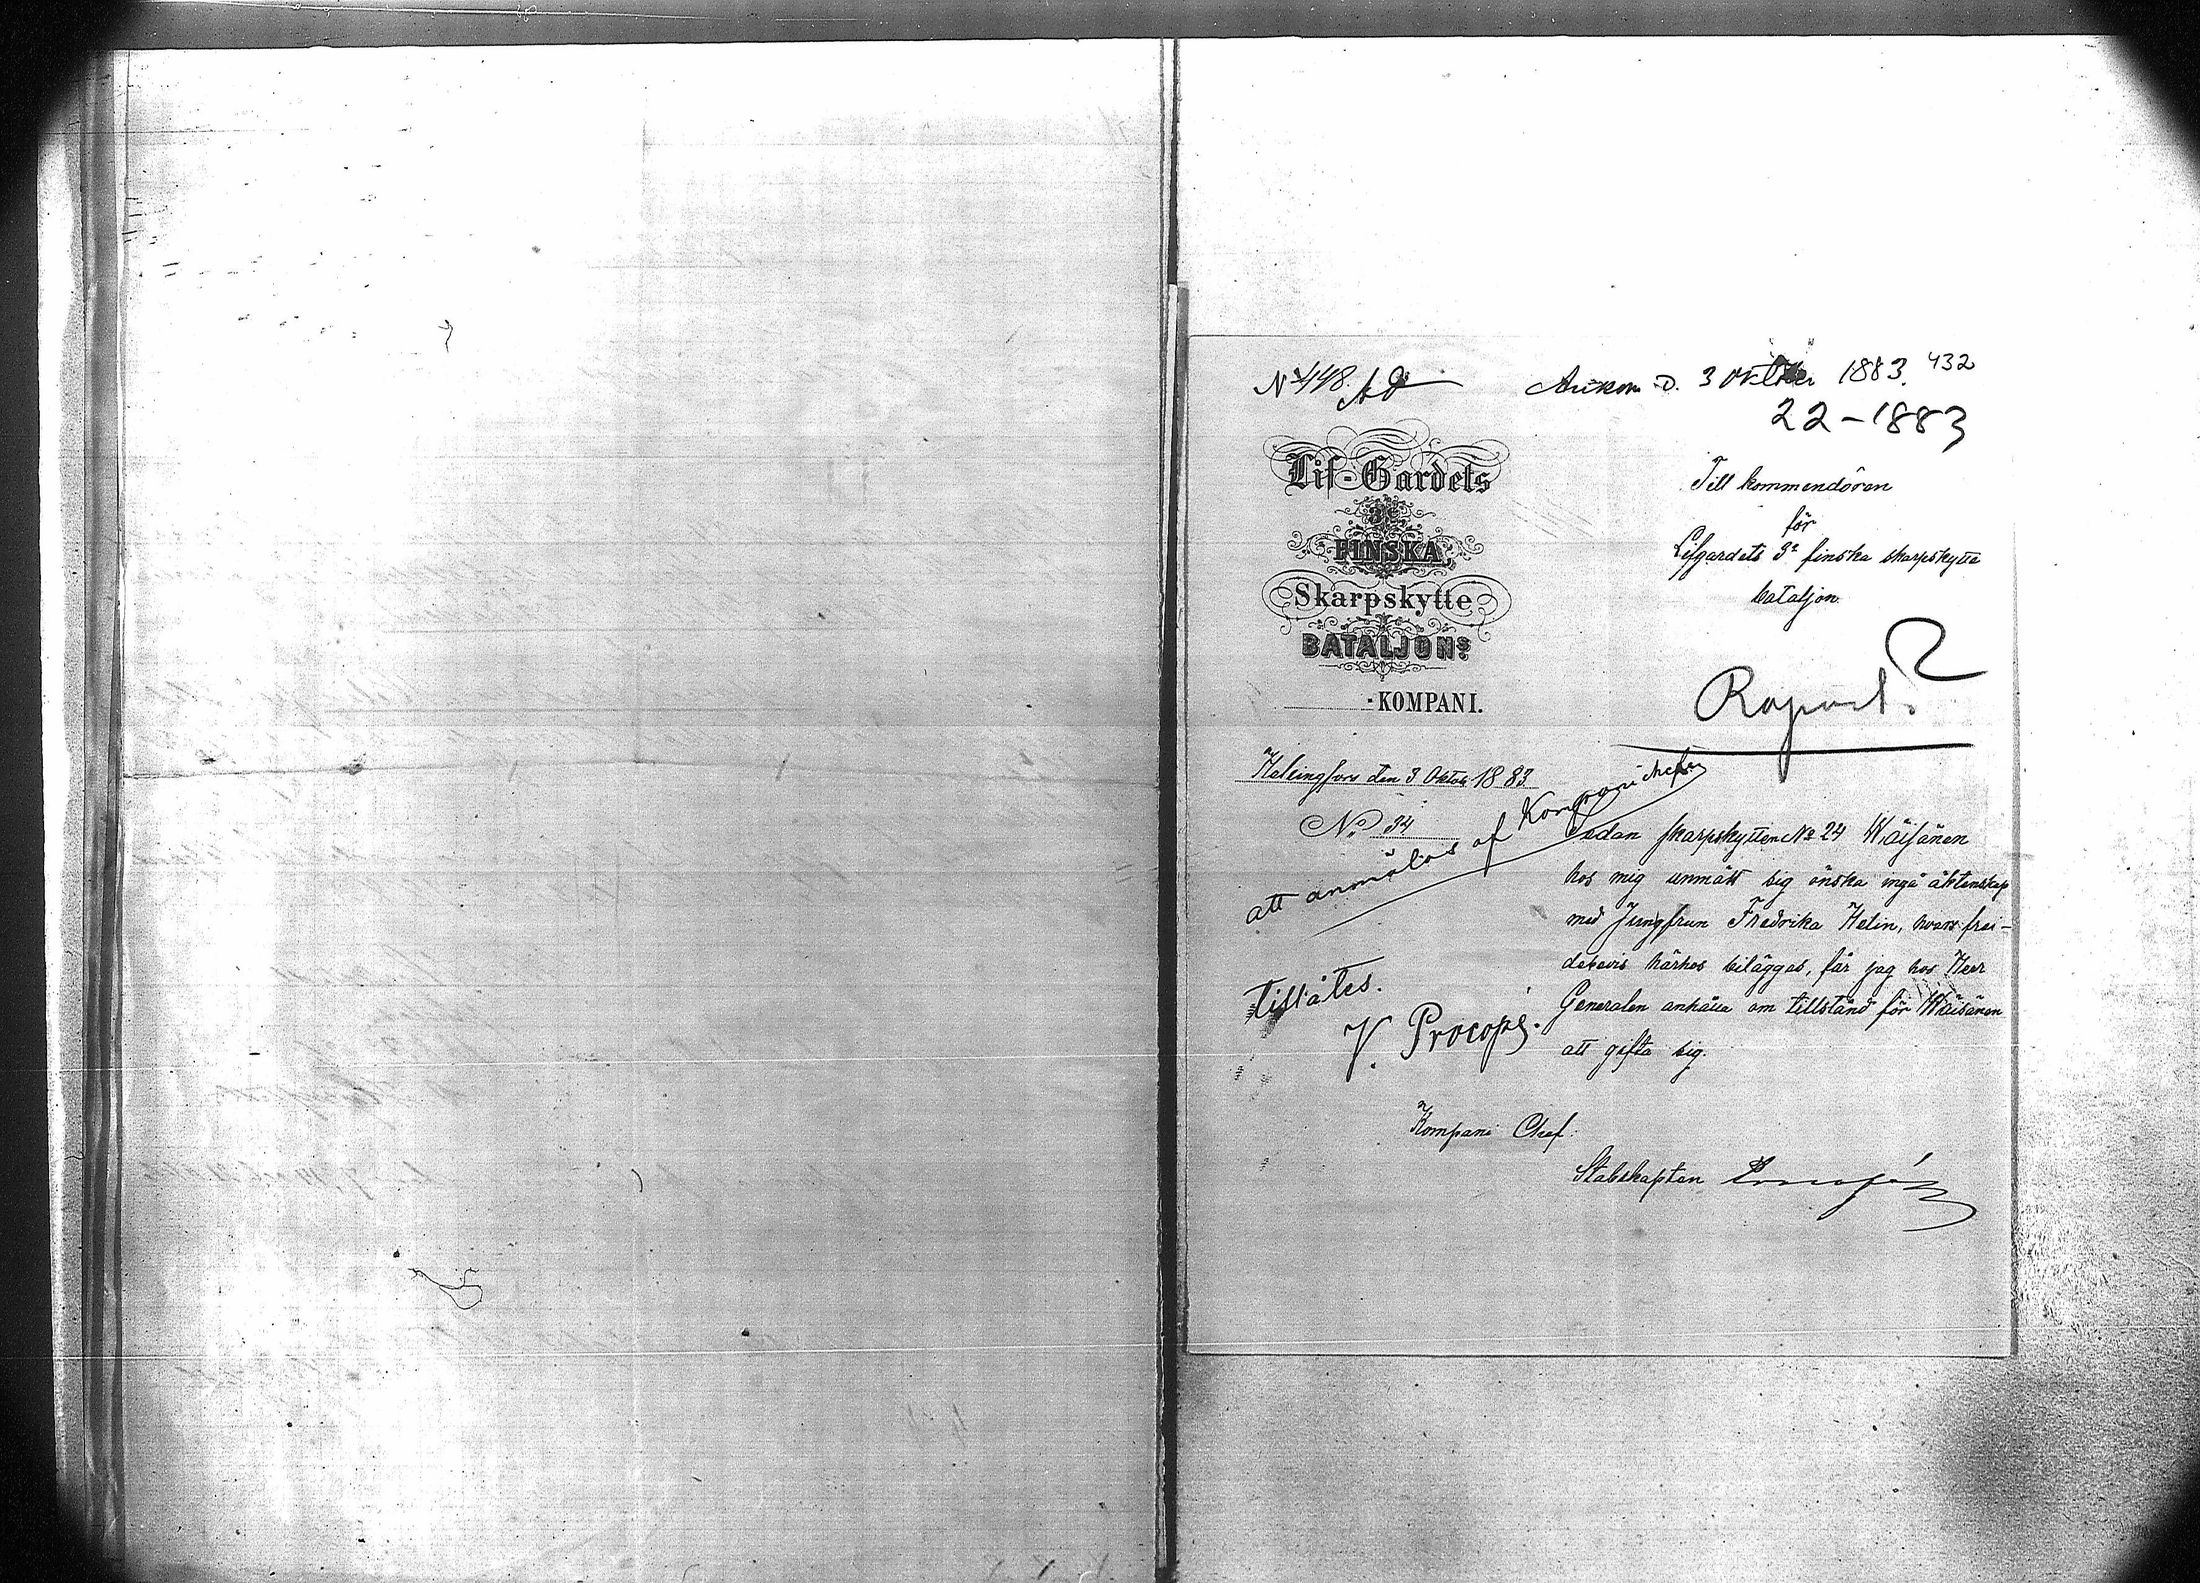 No 448. Ad
Ankom d. 3 Oktober 1883. 432
22-1883
Lif-Gardets
3e
FINSKA
Skarpskytte
BATALJONs
-KOMPANI.
Till kommendören
för
Lifgardets 3e finska skarpskytte
bataljon.
Raport.
Helsingfors den 3 Oktob 1883
No 34
att anmälas af Kompanichefen
Tillåtes.
V. Procopé.
Sedan skarpskytten No 24 Wäisänen
hos mig anmält sig önska ingå äktenskap
med Jungfrun Fredrika Helin, hvars frei-
debevis härhos biläggas, får jag hos Herr
Generalen anhålla om tillstånd för Wäisänen
att gifta sig.
Kompani Chef:
Stabskapten